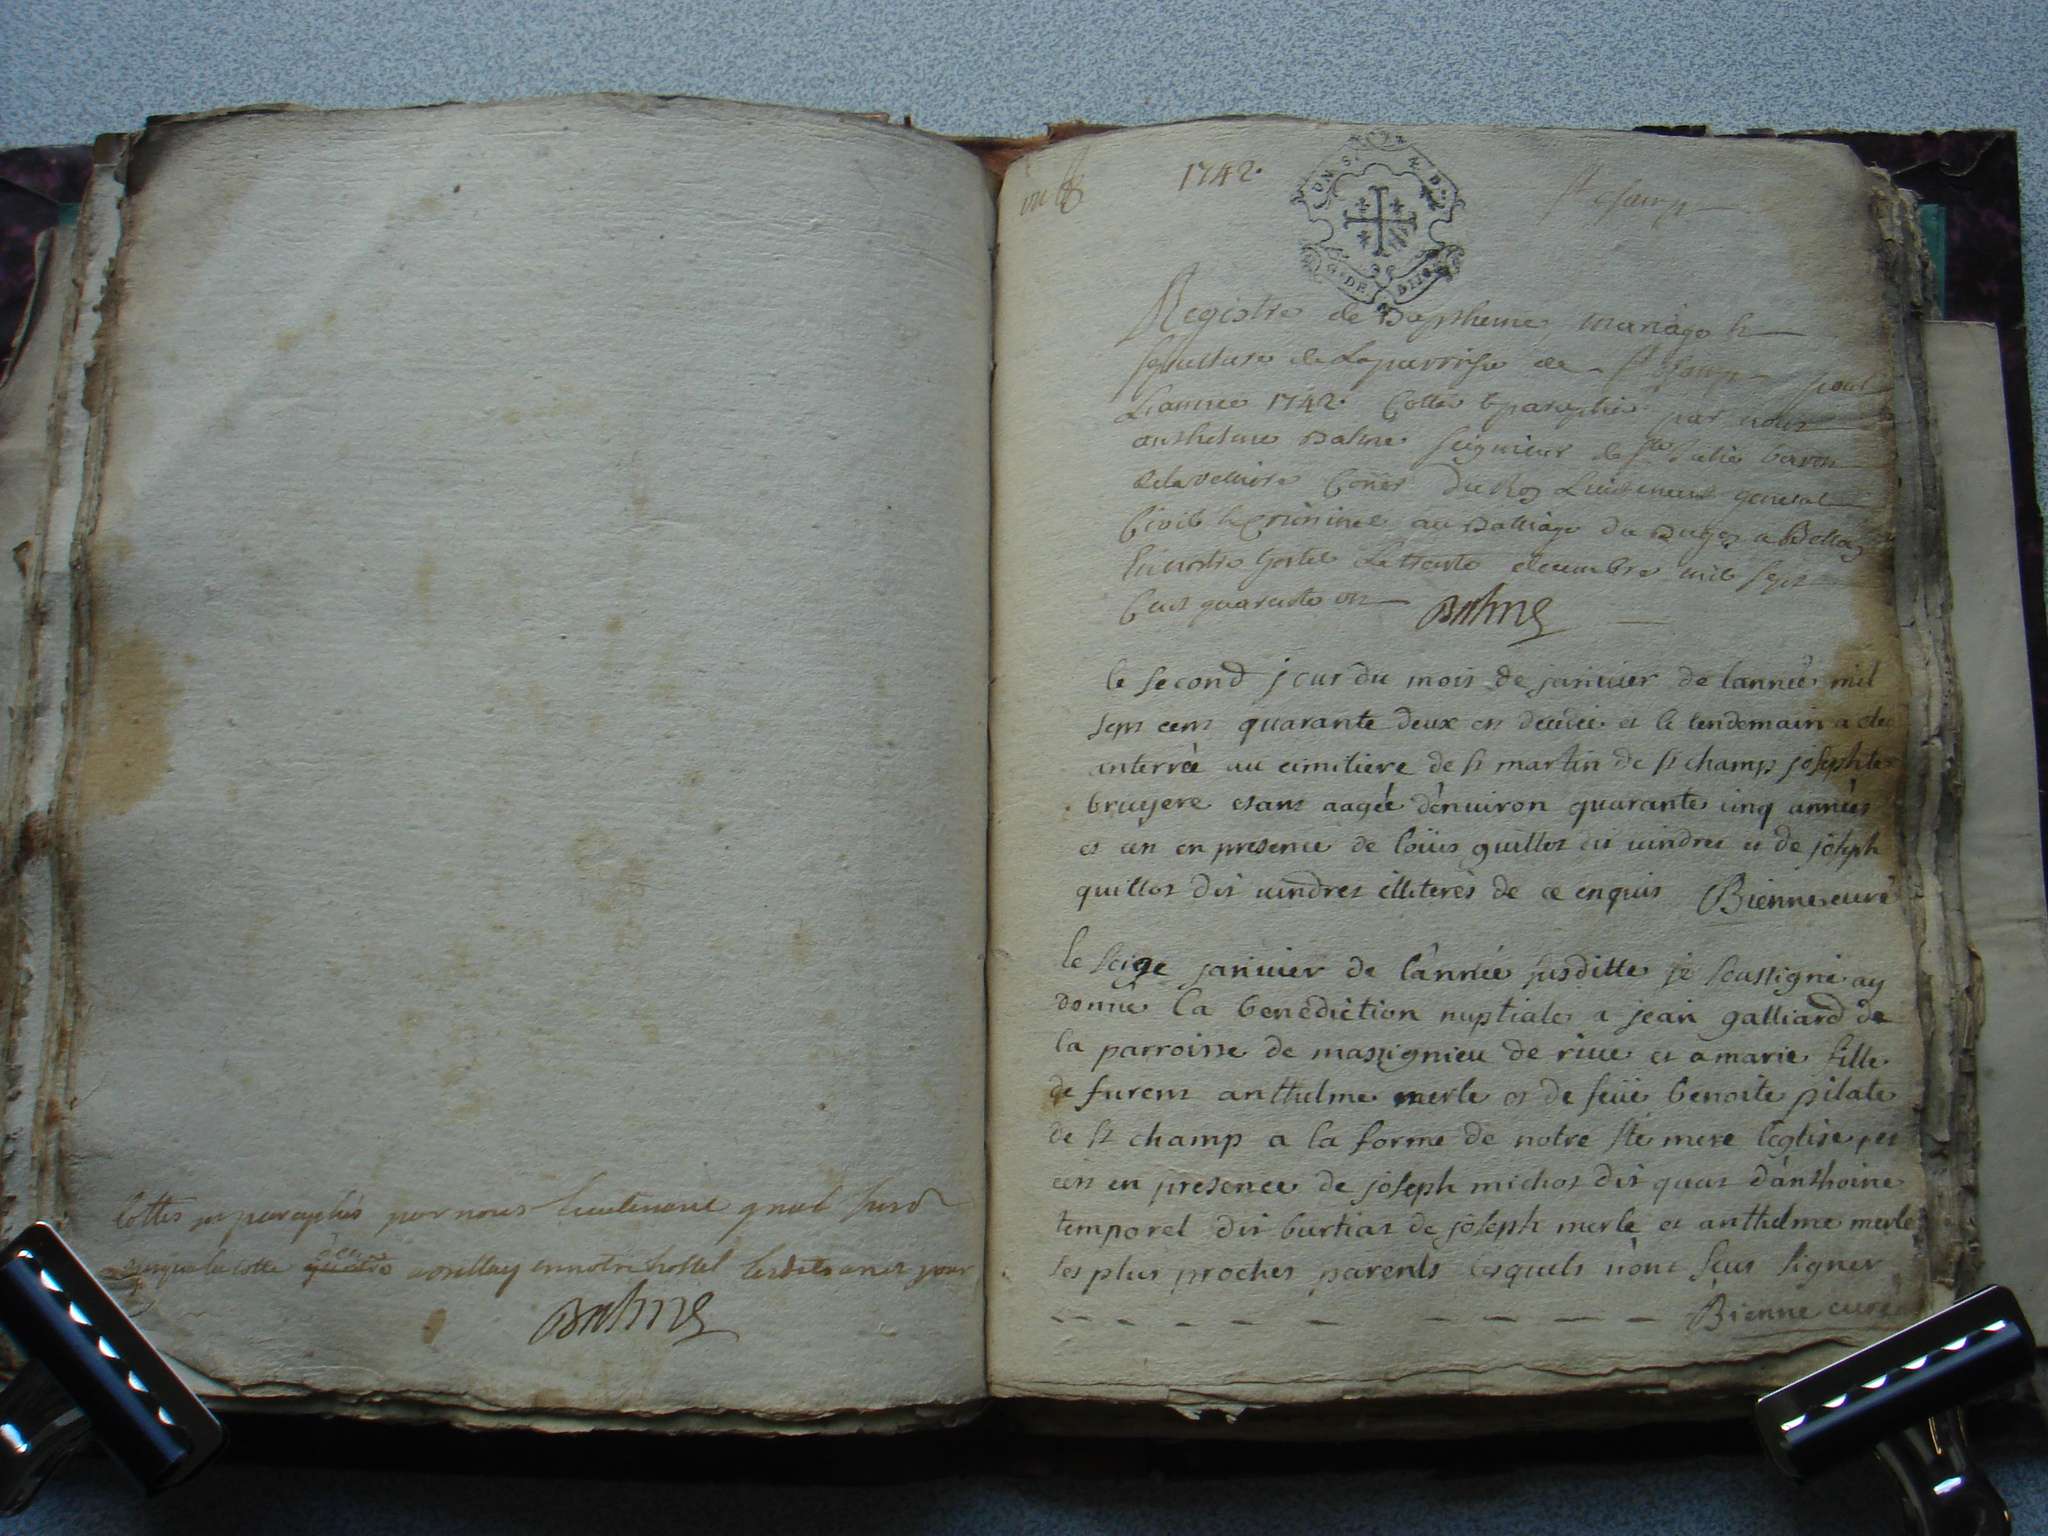 Cottés et paraphés par nous Lieutenant gnal susd
jusqu'a la cotte a Bellay en notre hostel lesdits an et jour
Balme
1742.
St Champ
Registre de Baptheme mariage &
sepulture de La parroisse de St Champ pour
Lannee 1742. Cotté & paraphé par nous
anthelme Balme seigneur de Ste Julie baron
Coner Du Roy Lieutenant general
Civil & Criminel au Balliage du Bugey a Belley
En nostre hostel Le trente decembre mil sept
Cent quarante un Balme
le second jour du mois de januier de lanneé mil
sept cent quarante deux est decedeé et le lendemain a eté
anterreé au cimitiere de st martin de st champ josephte
bruyere etant aageé d'enuiron quarante cinq anneés
et cen en presence de loüis guillot dit uindret et de joseph
guillot dit uindret illiterés de ce enquis Bienne curé
le seize januier de l'anneé susditte je soussigné ay
donné la benediction nuptiale a jean galliard de
la parroisse de massignieu de riue et a marie fille
de furent anthelme merle et de feüe benoite pilate
de st champ a la forme de notre ste mere l'eglise et
cen en presence de joseph michot dit quat d'anthoine
temporel dit burtiat de joseph merle et anthelme merle
ses plus proches parents lesquels n'ont sçus signer
Bienne curé